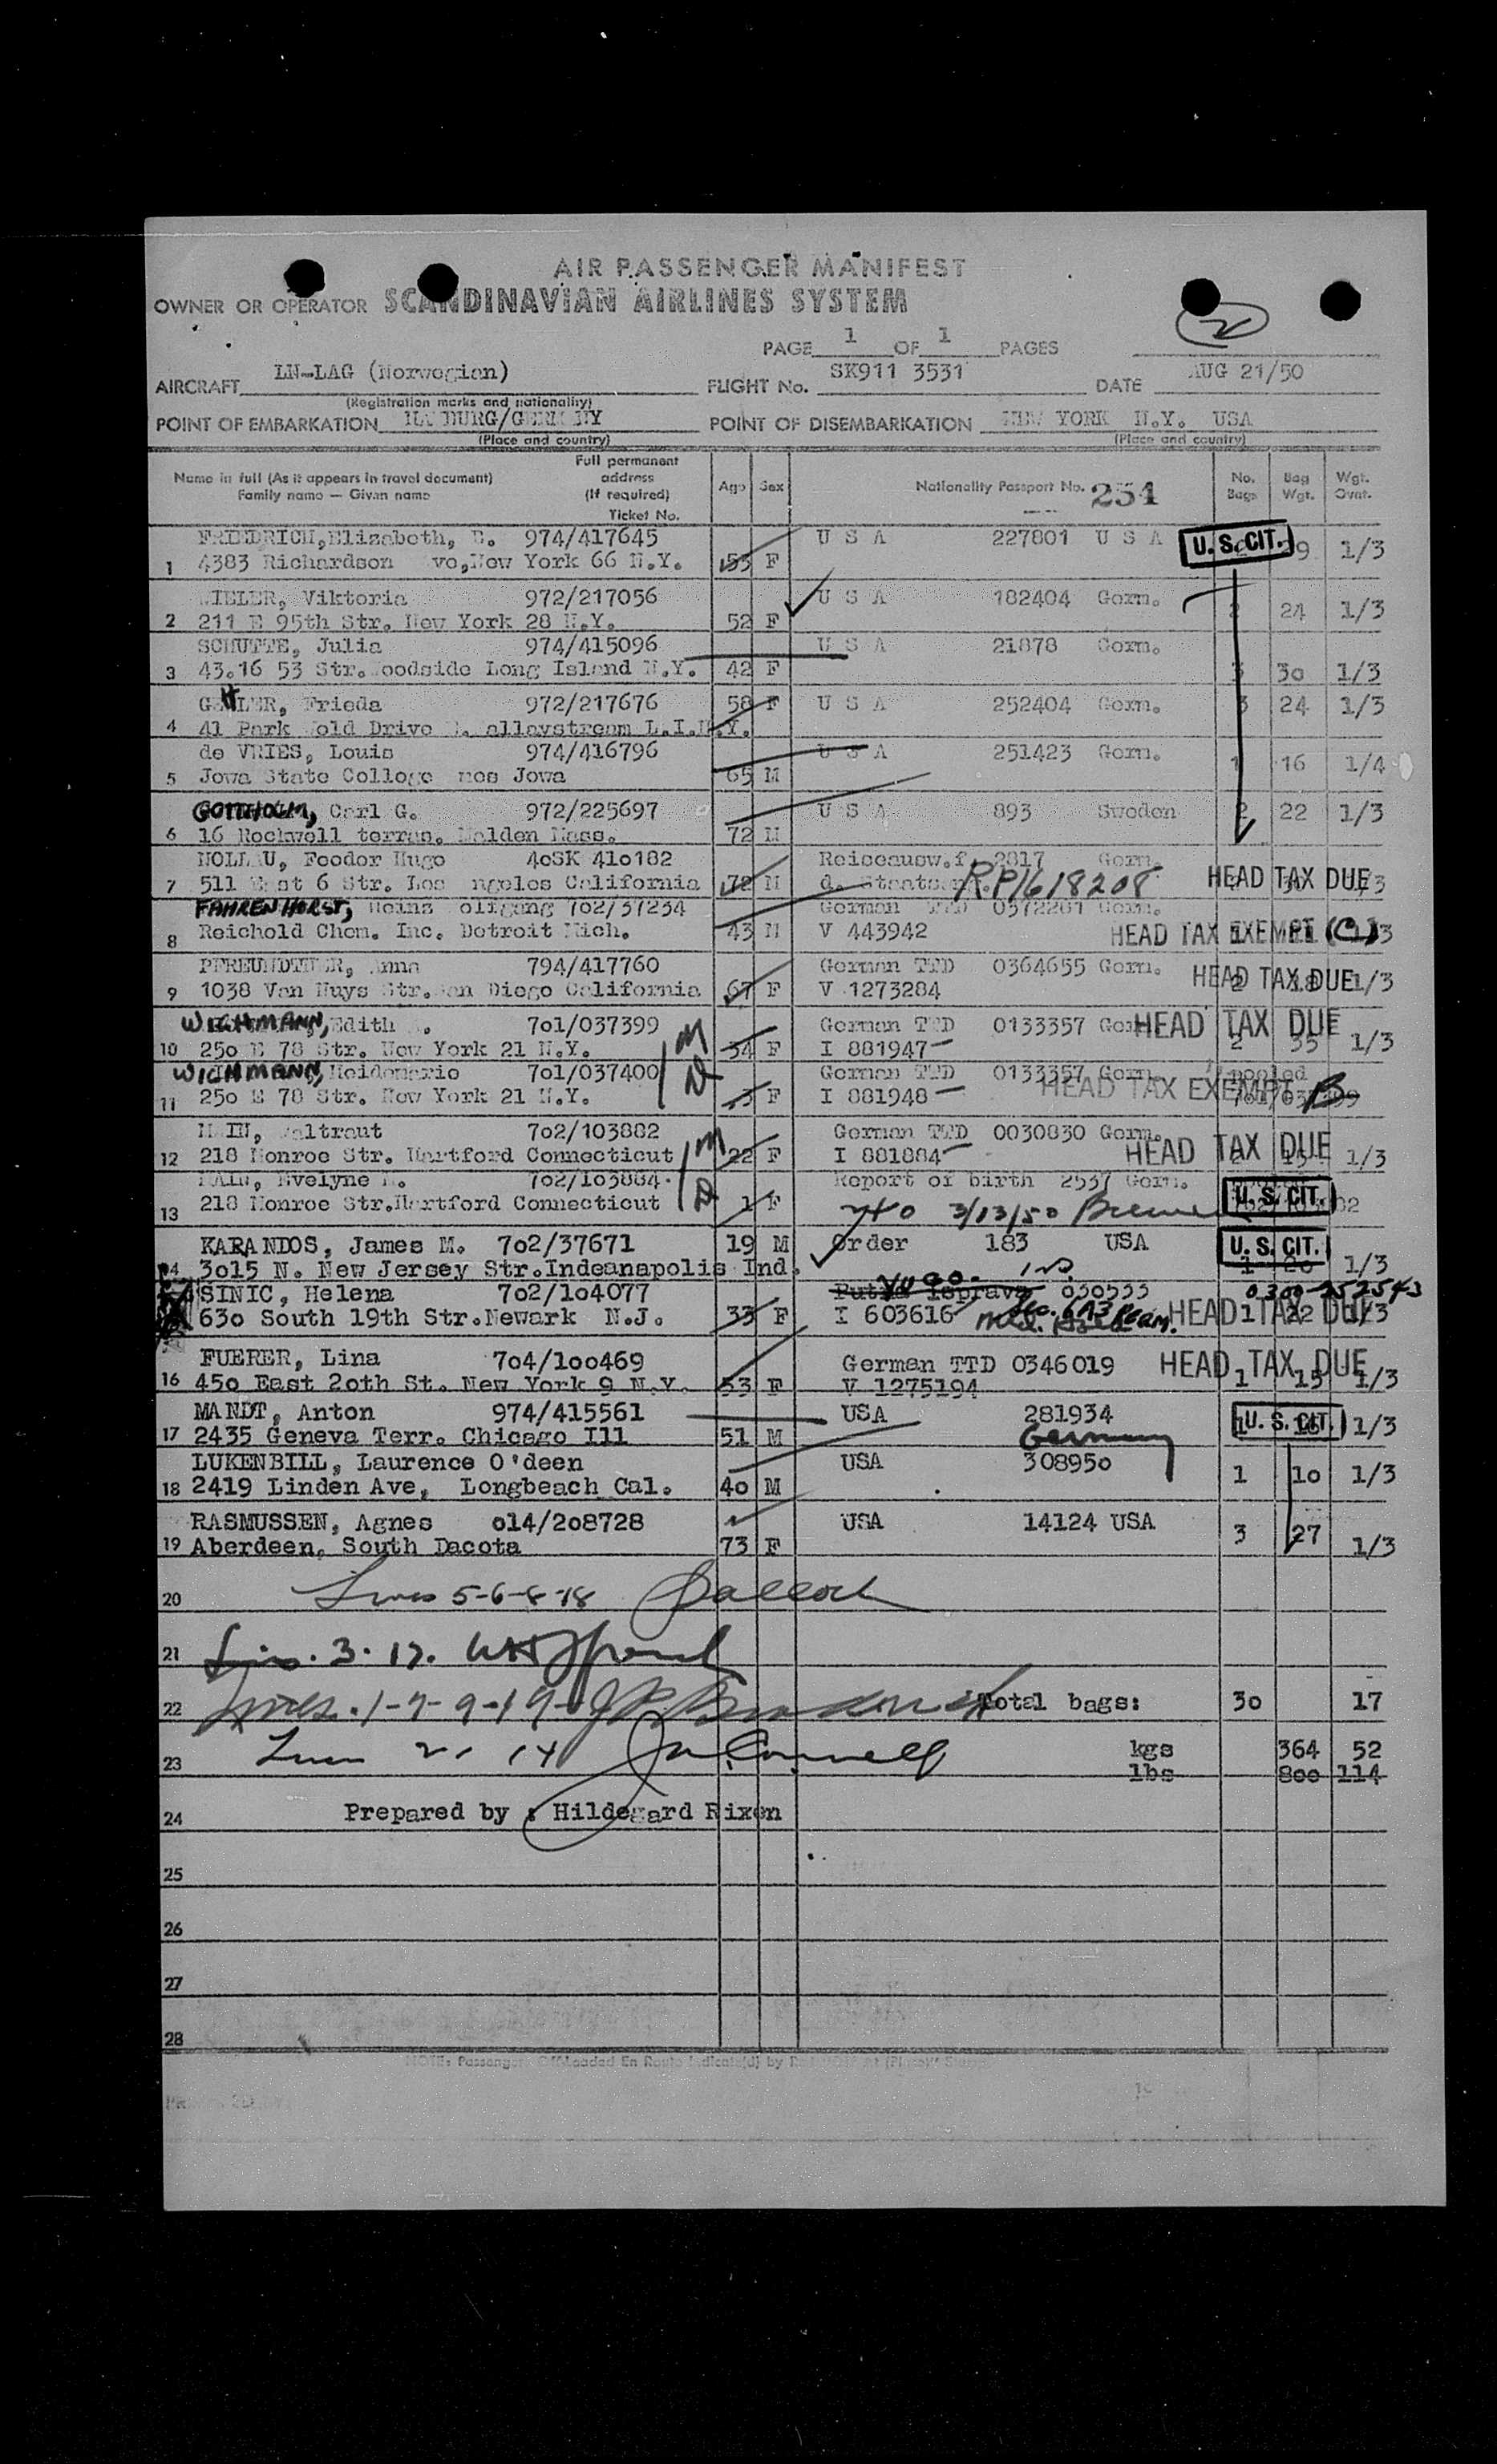 AIR PASSENGER MANIFEST
OWNER OR OPERATOR SCANDINAVIAN AIRLINES SYSTEM
2
PAGE 1 OF 1 PAGES
AIRCRAFT LN-LAG (Norwegian) FLIGHT No. SK911 3531 DATE AUG 21/50
(Registration marks and nationality)
POINT OF EMBARKATION HAMBURG/GERMANY POINT OF DISEMBARKATION NEW YORK N.Y. USA
(Place and country) (Place and country)
Name in full (As it appears in travel document) Family name — Given name Full permanent address (If required) Ticket No. Age Sex Nationality Passport No. 254 No. Bags Bag Wgt. Wgt. Ovnt.
FRIEDRICH, Elizabeth, E. 974/417645 U S A 227801 U S A U. S. CIT.
1 4383 Richardson ve, New York 66 N.Y. 53 F 1/3
Viktoria 972/217056 U S A 182404 Germ.
2 211 E 95th Str. New York 28 N.Y. 52 F 2 24 1/3
SCHUTTE, Julia 974/415096 U S A 21878 Germ.
3 43.16 53 Str. Woodside Long Island N.Y. 42 F 3 30 1/3
Frieda 972/217676 58 F U S A 252404 Germ. 3 24 1/3
4 41 Park old Drive alleystream L.I.N.Y.
de VRIES, Louis 974/416796 U S A 251423 Germ.
5 Jowa State College mes Jowa 65 M 1 16 1/4
Carl G. 972/225697 U S A 893 Sweden 2 22 1/3
6 16 Rockwell terras. Malden Mass. 72 M
Feodor Hugo 4oSK 41o182 Reiseausw.f. 2817 Germ.
7 511 East 6 Str. Los Angeles California 72 M d. Staatsan R.P1618208 HEAD TAX DUE
FAHRENHORST, Heinz olfgang 702/37234 German TTD 0372201 Germ.
8 Reichold Chem. Inc. Detroit Mich. 43 M V 443942 HEAD TAX EXEMPT (C)
PFREUNDTNER, Anna 794/417760 German TTD 0364655 Germ.
9 1038 Van Nuys Str. San Diego California 67 F V 1273284 HEAD TAX DUE 1/3
WICHMANN, Edith 7o1/037399 German TTD 0133357 HEAD TAX DUE
10 25o E 78 Str. New York 21 N.Y. M 34 F I 881947 2 35 1/3
WICHMANN, Heidemarie 7o1/037400 German TTD 0133357 Germ. pooled
11 25o E 78 Str. New York 21 N.Y. D F I 881948 HEAD TAX EXEMPT B
altraut 7o2/103882 German TTD 0030830 Germ.
12 218 Monroe Str. Hartford Connecticut M 22 F I 881884 HEAD TAX DUE 1/3
MAIN, Evelyne 7o2/103884. Report of birth 2537 Germ.
13 218 Monroe Str.Hartford Connecticut D 1 F 240 3/13/50 U. S. CIT.
KARANDOS, James M. 7o2/37671 19 M Order 183 USA U. S. CIT.
14 3o15 N. New Jersey Str.Indeanapolis Ind. 1 20 1/3
SINIC, Helena 7o2/1o4077 Putna Isprava YUGO. 030533 0300-252543
63o South 19th Str.Newark N.J. 33 F I 603616 HEAD TAX DUE
FUERER, Lina 7o4/1oo469 German TTD 0346019 HEAD TAX DUE
16 45o East 2oth St. New York 9 N.Y. 53 F V 1275194 1 15 1/3
MANDT, Anton 974/415561 USA 281934 U. S. CIT.
17 2435 Geneva Terr. Chicago Ill 51 M Germany 1/3
LUKENBILL, Laurence O'deen USA 30895o
18 2419 Linden Ave, Longbeach Cal. 4o M 1 1o 1/3
RASMUSSEN, Agnes o14/208728 USA 14124 USA
19 Aberdeen, South Dacota 73 F 3 27 1/3
20 Lines 5-6-8-18
21 3. 17.
22 Lines. 1-7-9-19 Total bags: 3o 17
23 2. 14 kgs 364 52
lbs 8oo 114
24 Prepared by : Hildegard Rixen
25
26
27
28